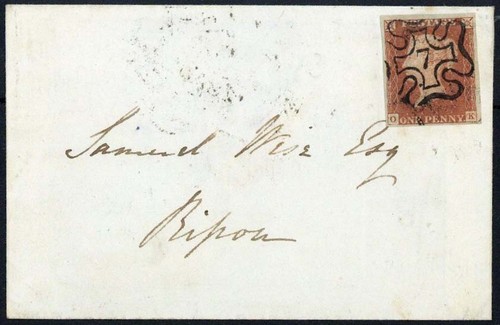 7
O ONE PENNY K
Samuel Wise Esq
Ripon